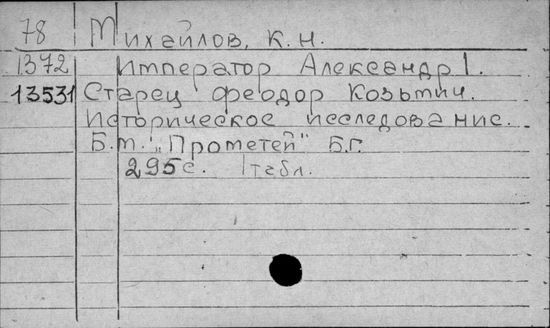 78 Михайлов, К. Н.
1372 Император Александр I.
13531 Старец Феодор Козьмич.
Историческое исследование.
Б.т. "Прометей" Б.г.
295 с. 1 табл.